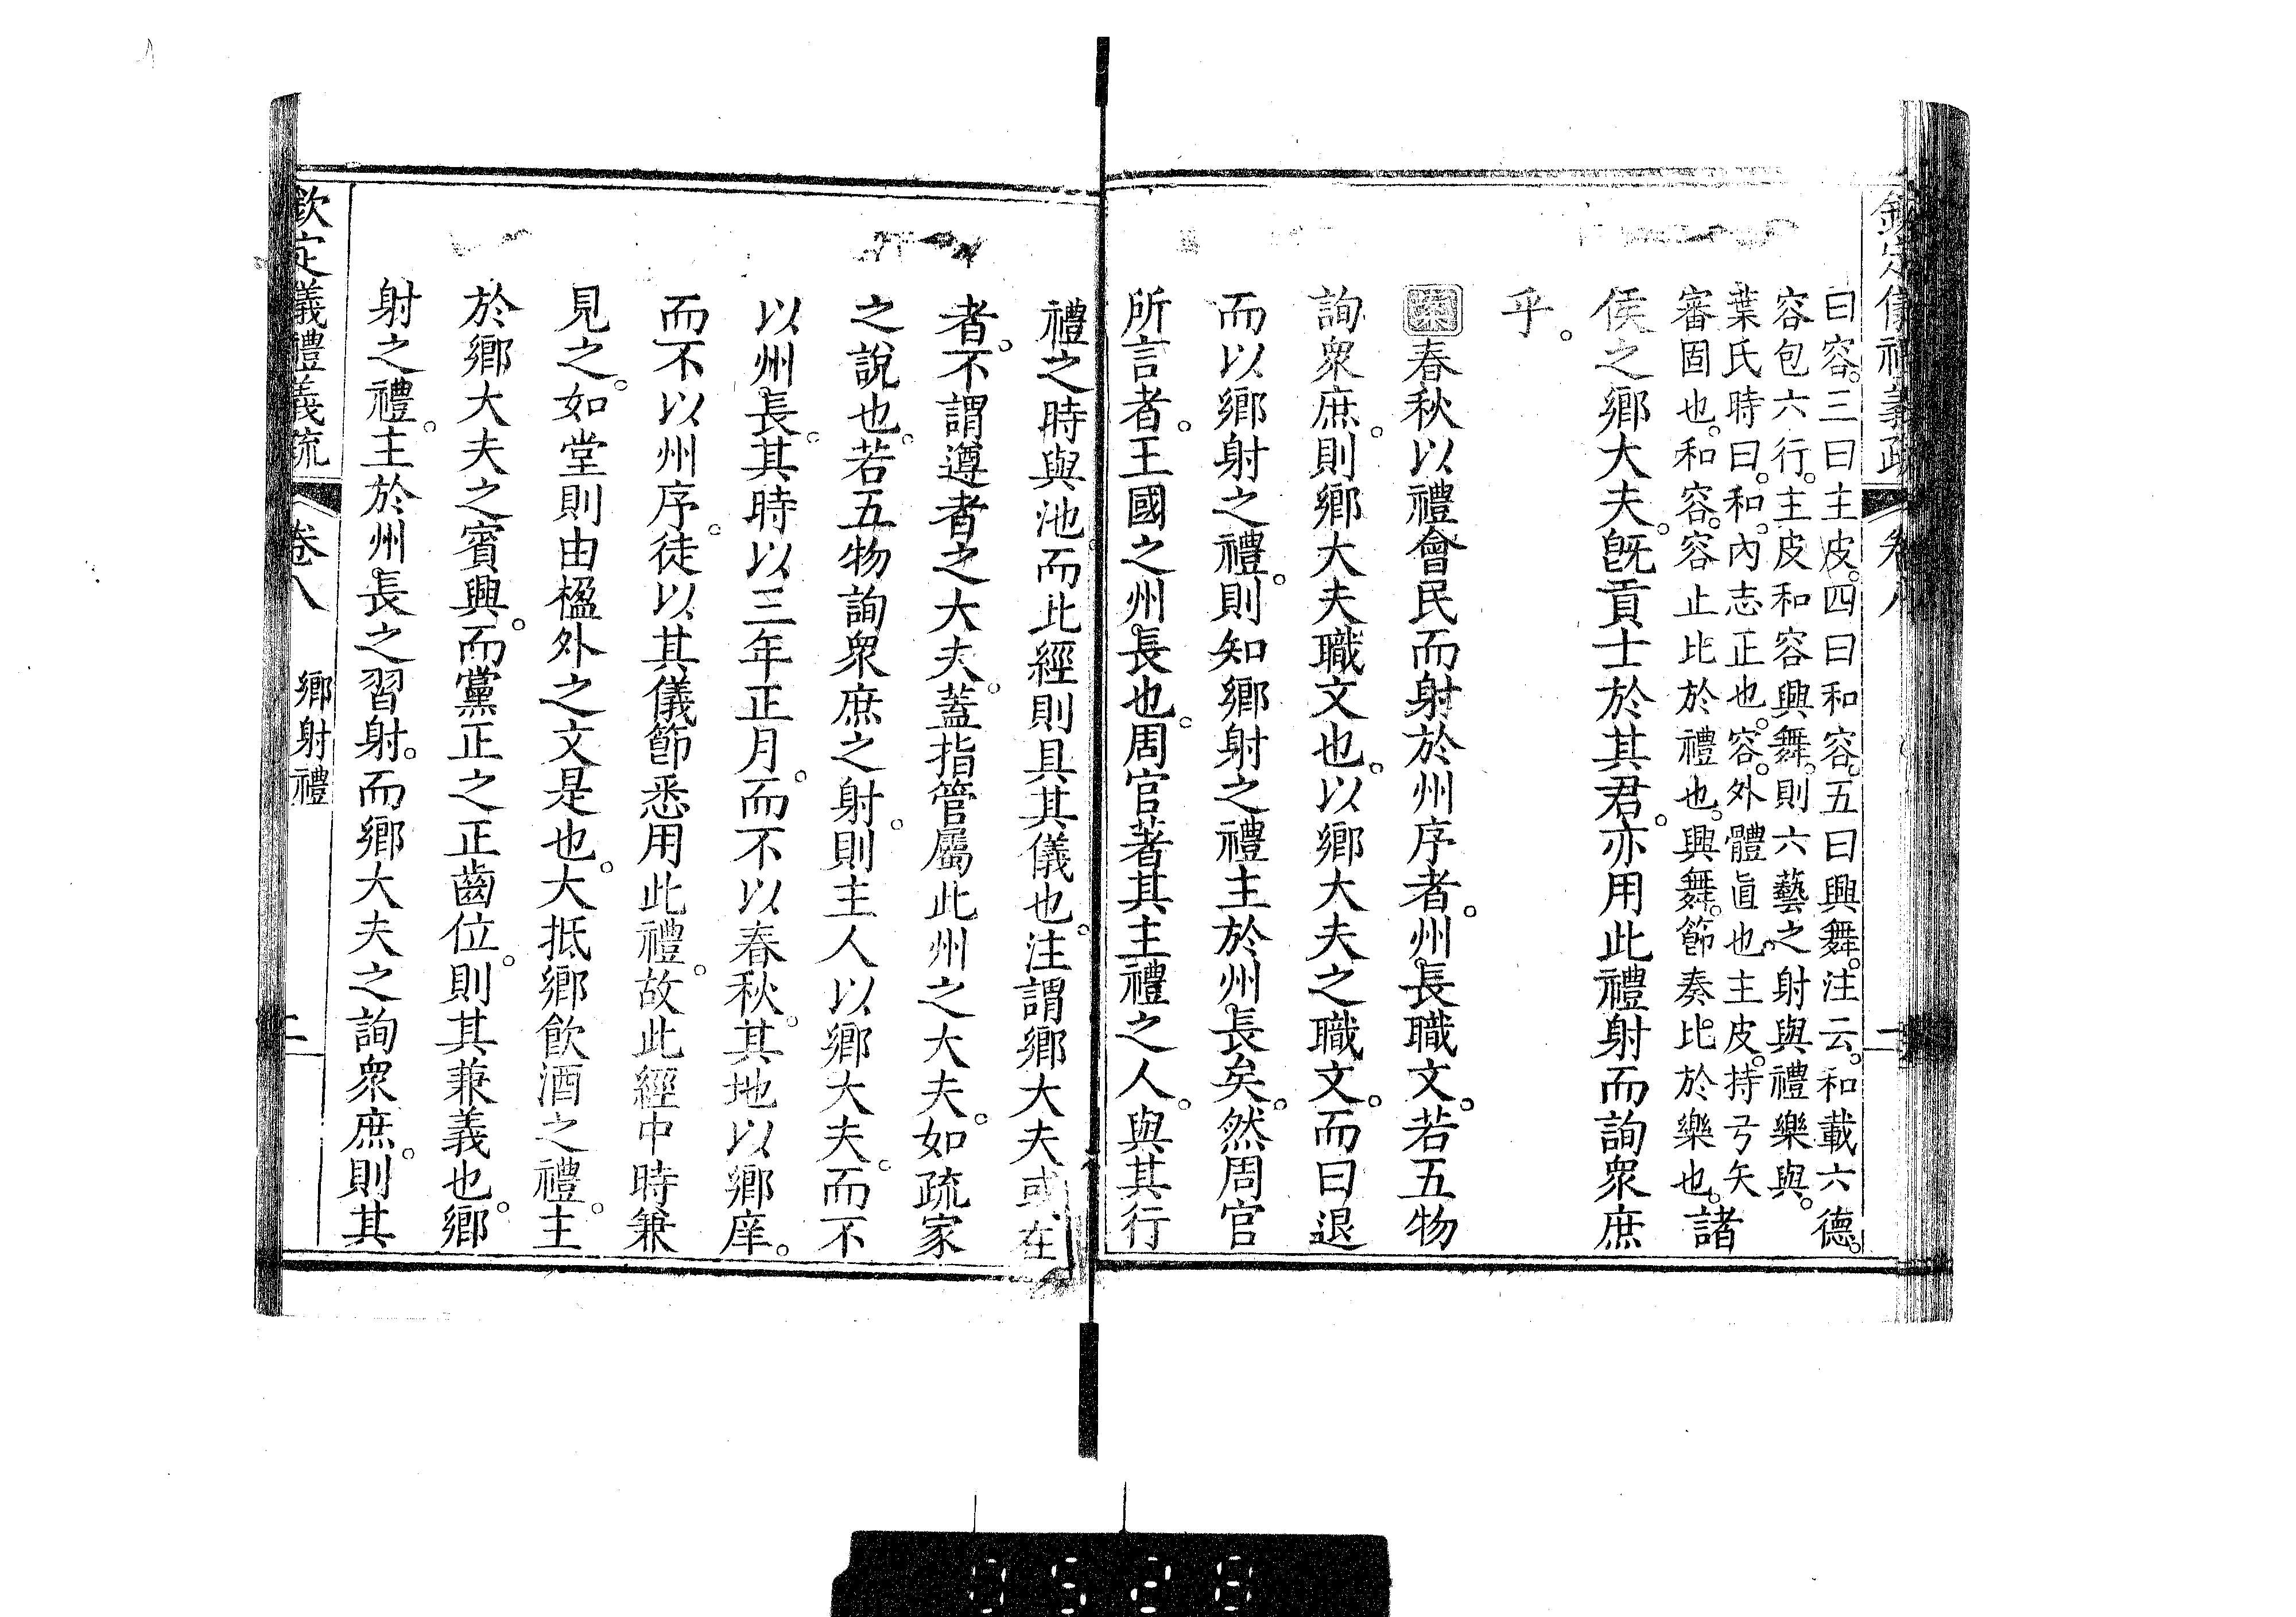 欽定儀禮義疏 卷八
曰容。三曰主皮。四曰和容。五曰興舞。注云。和載六德。
容包六行。主皮和容興舞。則六藝之射與禮樂與。
葉氏時曰。和。內志正也。容。外體直也。主皮。持弓矢
審固也。和容。容止比於禮也。興舞。節奏比於樂也。諸
侯之鄉大夫。旣貢士於其君。亦用此禮射而詢衆庶
乎。
案春秋以禮會民而射於州序者。州長職文。若五物
詢衆庶。則鄉大夫職文也。以鄉大夫之職文。而曰退
而以鄉射之禮。則知鄉射之禮主於州長矣。然周官
所言者。王國之州長也。周官著其主禮之人。與其行
禮之時與池。而此經則具其儀也。注謂鄉大夫或在
者。不謂遵者之大夫。蓋指管屬此州之大夫。如疏家
之說也。若五物詢衆庶之射。則主人以鄉大夫。而不
以州長。其時以三年正月。而不以春秋。其地以鄉庠。
而不以州序。徒以其儀節悉用此禮。故此經中時兼
見之。如堂則由楹外之文是也。大抵鄉飲酒之禮。主
於鄉大夫之賓興。而黨正之正齒位。則其兼義也。鄉
射之禮。主於州長之習射。而鄉大夫之詢衆庶。則其
欽定儀禮義疏 卷八 鄉射禮 二